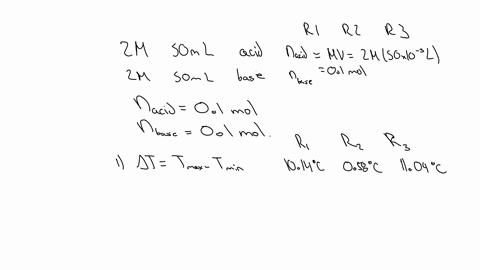 R1 R2 R3
2M 50mL acid n acid = MV = 2M (50x10⁻³L)
2M 50mL base n base = 0.1 mol
n acid = 0.1 mol
n base = 0.1 mol.
R₁ R₂ R₃
1) ΔT = T max - T min 10.14°C 0.58°C 11.04°C